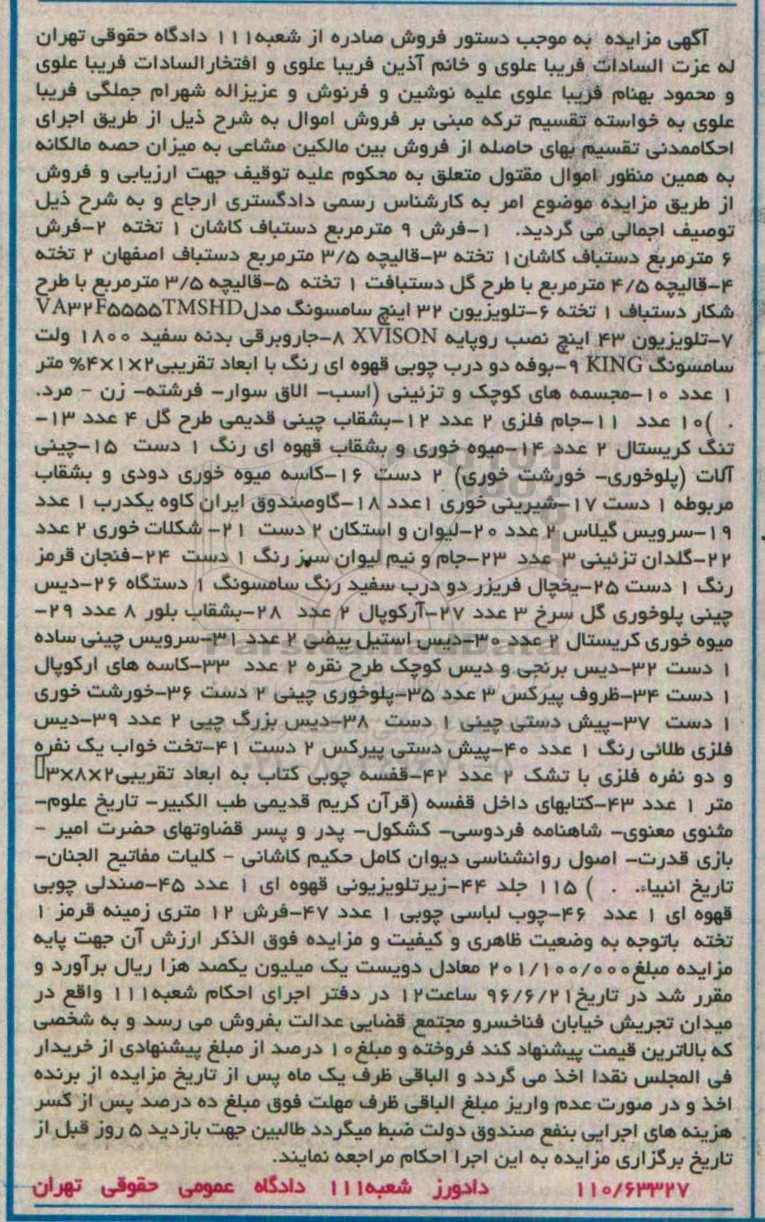 آگهی مزایده به موجب دستور فروش صادره از شعبه۱۱۱ دادگاه حقوقی تهران
له عزت السادات فریبا علوی و خانم آذین فریبا علوی و افتخارالسادات فریبا علوی
و محمود بهنام فریبا علوی علیه نوشین و فرنوش و عزیزاله شهرام جملگی فریبا
علوی به خواسته تقسیم ترکه مبنی بر فروش اموال به شرح ذیل از طریق اجرای
احکاممدنی تقسیم بهای حاصله از فروش بین مالکین مشاعی به میزان حصه مالکانه
به همین منظور اموال مقتول متعلق به محکوم علیه توقیف جهت ارزیابی و فروش
از طریق مزایده موضوع امر به کارشناس رسمی دادگستری ارجاع و به شرح ذیل
توصیف اجمالی می گردید. ۱-فرش ۹ مترمربع دستباف کاشان ۱ تخته ۲-فرش
۶ مترمربع دستباف کاشان۱ تخته ۳-قالیچه ۳/۵ مترمربع دستباف اصفهان ۲ تخته
۴-قالیچه ۴/۵ مترمربع با طرح گل دستبافت ۱ تخته ۵-قالیچه ۳/۵ مترمربع با طرح
شکار دستباف ۱ تخته ۶-تلویزیون ۳۲ اینچ سامسونگ مدلVA۳۲F۵۵۵۵TMSHD
۷-تلویزیون ۴۳ اینچ نصب روپایه XVISON ۸-جاروبرقی بدنه سفید ۱۸۰۰ ولت
سامسونگ KING ۹-بوفه دو درب چوبی قهوه ای رنگ با ابعاد تقریبی۲×۱×۴% متر
۱ عدد ۱۰-مجسمه های کوچک و تزئینی (اسب- الاق سوار- فرشته- زن - مرد.
. )۱۰ عدد ۱۱-جام فلزی ۲ عدد ۱۲-بشقاب چینی قدیمی طرح گل ۴ عدد ۱۳-
تنگ کریستال ۲ عدد ۱۴-میوه خوری و بشقاب قهوه ای رنگ ۱ دست ۱۵-چینی
آلات (پلوخوری- خورشت خوری) ۲ دست ۱۶-کاسه میوه خوری دودی و بشقاب
مربوطه ۱ دست ۱۷-شیرینی خوری ۱عدد ۱۸-گاوصندوق ایران کاوه یکدرب ۱ عدد
۱۹-سرویس گیلاس ۲ عدد ۲۰-لیوان و استکان ۲ دست ۲۱- شکلات خوری ۲ عدد
۲۲-گلدان تزئینی ۳ عدد ۲۳-جام و نیم لیوان سبز رنگ ۱ دست ۲۴-فنجان قرمز
رنگ ۱ دست ۲۵-یخچال فریزر دو درب سفید رنگ سامسونگ ۱ دستگاه ۲۶-دیس
چینی پلوخوری گل سرخ ۳ عدد ۲۷-آرکوپال ۲ عدد ۲۸-بشقاب بلور ۸ عدد ۲۹-
میوه خوری کریستال ۲ عدد ۳۰-دیس استیل بیضی ۲ عدد ۳۱-سرویس چینی ساده
۱ دست ۳۲-دیس برنجی و دیس کوچک طرح نقره ۲ عدد ۳۳-کاسه های ارکوپال
۱ دست ۳۴-ظروف پیرکس ۳ عدد ۳۵-پلوخوری چینی ۲ دست ۳۶-خورشت خوری
۱ دست ۳۷-پیش دستی چینی ۱ دست ۳۸-دیس بزرگ چیی ۲ عدد ۳۹-دیس
فلزی طلائی رنگ ۱ عدد ۴۰-پیش دستی پیرکس ۲ دست ۴۱-تخت خواب یک نفره
و دو نفره فلزی با تشک ۲ عدد ۴۲-قفسه چوبی کتاب به ابعاد تقریبی۲×۸×۳
متر ۱ عدد ۴۳-کتابهای داخل قفسه (قرآن کریم قدیمی طب الکبیر- تاریخ علوم-
مثنوی معنوی- شاهنامه فردوسی- کشکول- پدر و پسر قضاوتهای حضرت امیر -
بازی قدرت- اصول روانشناسی دیوان کامل حکیم کاشانی - کلیات مفاتیح الجنان-
تاریخ انبیاء. . ) ۱۱۵ جلد ۴۴-زیرتلویزیونی قهوه ای ۱ عدد ۴۵-صندلی چوبی
قهوه ای ۱ عدد ۴۶-چوب لباسی چوبی ۱ عدد ۴۷-فرش ۱۲ متری زمینه قرمز ۱
تخته باتوجه به وضعیت ظاهری و کیفیت و مزایده فوق الذکر ارزش آن جهت پایه
مزایده مبلغ۲۰۱/۱۰۰/۰۰۰ معادل دویست یک میلیون یکصد هزا ریال برآورد و
مقرر شد در تاریخ۹۶/۶/۲۱ ساعت۱۲ در دفتر اجرای احکام شعبه۱۱۱ واقع در
میدان تجریش خیابان فناخسرو مجتمع قضایی عدالت بفروش می رسد و به شخصی
که بالاترین قیمت پیشنهاد کند فروخته و مبلغ۱۰ درصد از مبلغ پیشنهادی از خریدار
فی المجلس نقدا اخذ می گردد و الباقی ظرف یک ماه پس از تاریخ مزایده از برنده
اخذ و در صورت عدم واریز مبلغ الباقی ظرف مهلت فوق مبلغ ده درصد پس از کسر
هزینه های اجرایی بنفع صندوق دولت ضبط میگردد طالبین جهت بازدید ۵ روز قبل از
تاریخ برگزاری مزایده به این اجرا احکام مراجعه نمایند.
۱۱۰/۶۳۳۲۷ دادورز شعبه۱۱۱ دادگاه عمومی حقوقی تهران